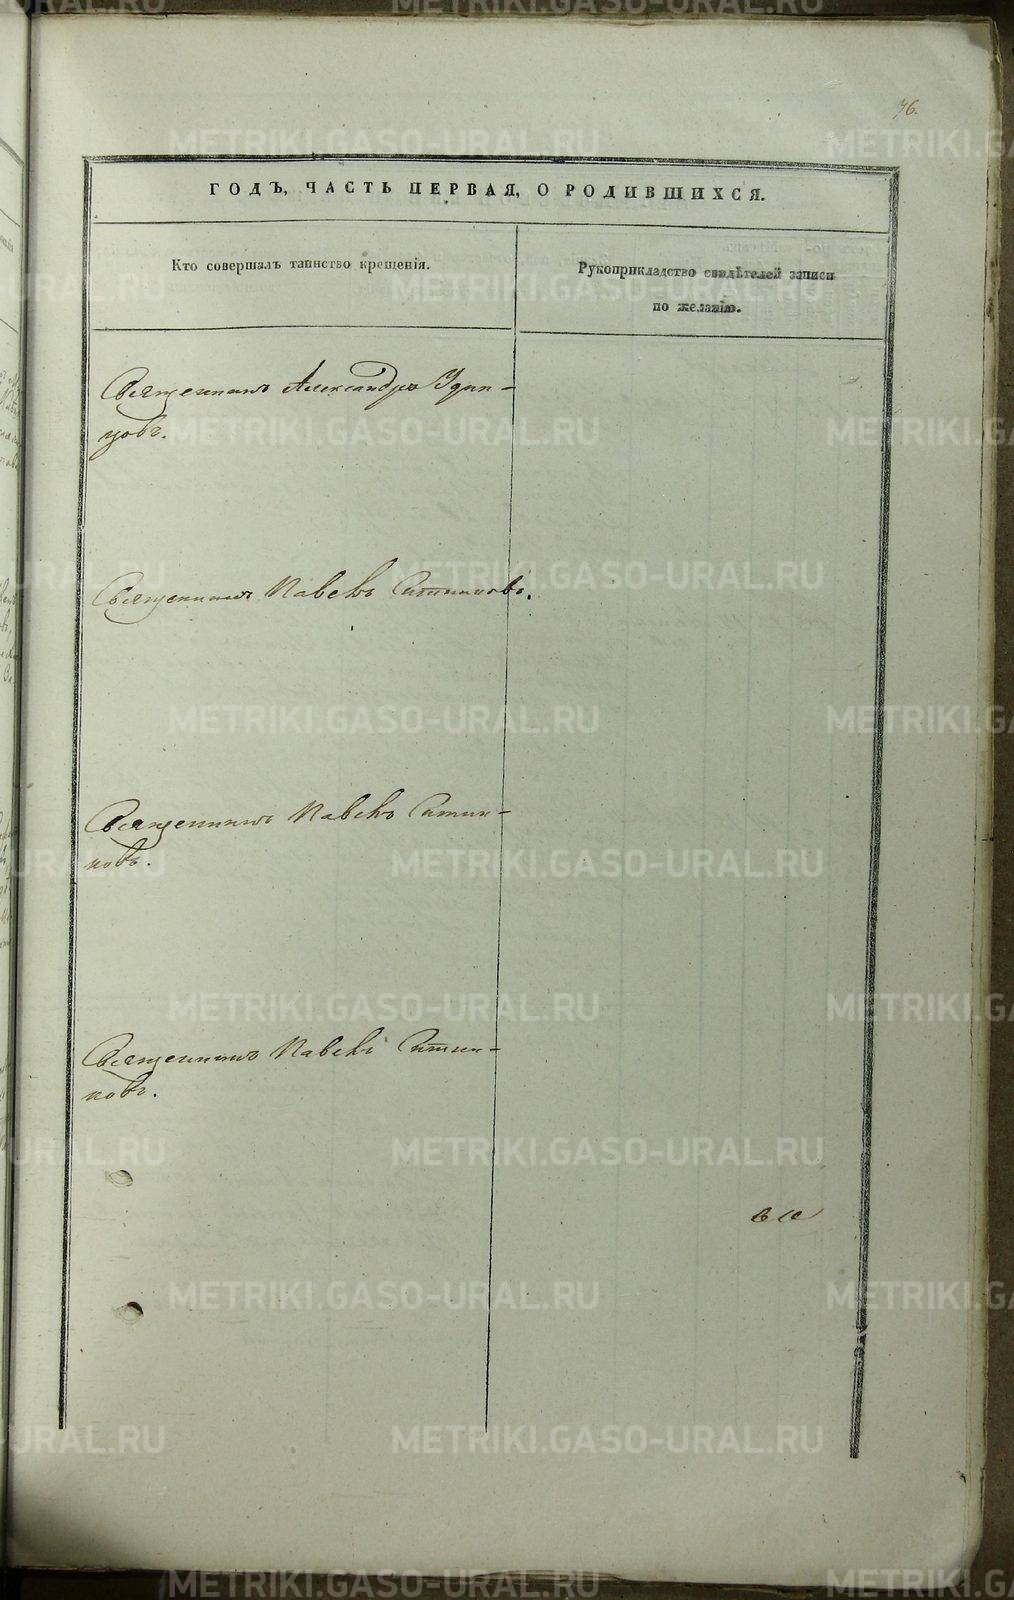 76.
ГОДЪ, ЧАСТЬ ПЕРВАЯ, О РОДИВШИХСЯ.
Кто совершалъ таинство крещенія.
Рукоприкладство свидѣтелей записи
по желанію.
Священникъ Александръ Удин-
цовъ.
Священникъ Павелъ Ситниковъ.
Священникъ Павелъ Ситни-
ковъ.
Священникъ Павелъ Ситни-
ковъ.
METRIKI.GASO-URAL.RU